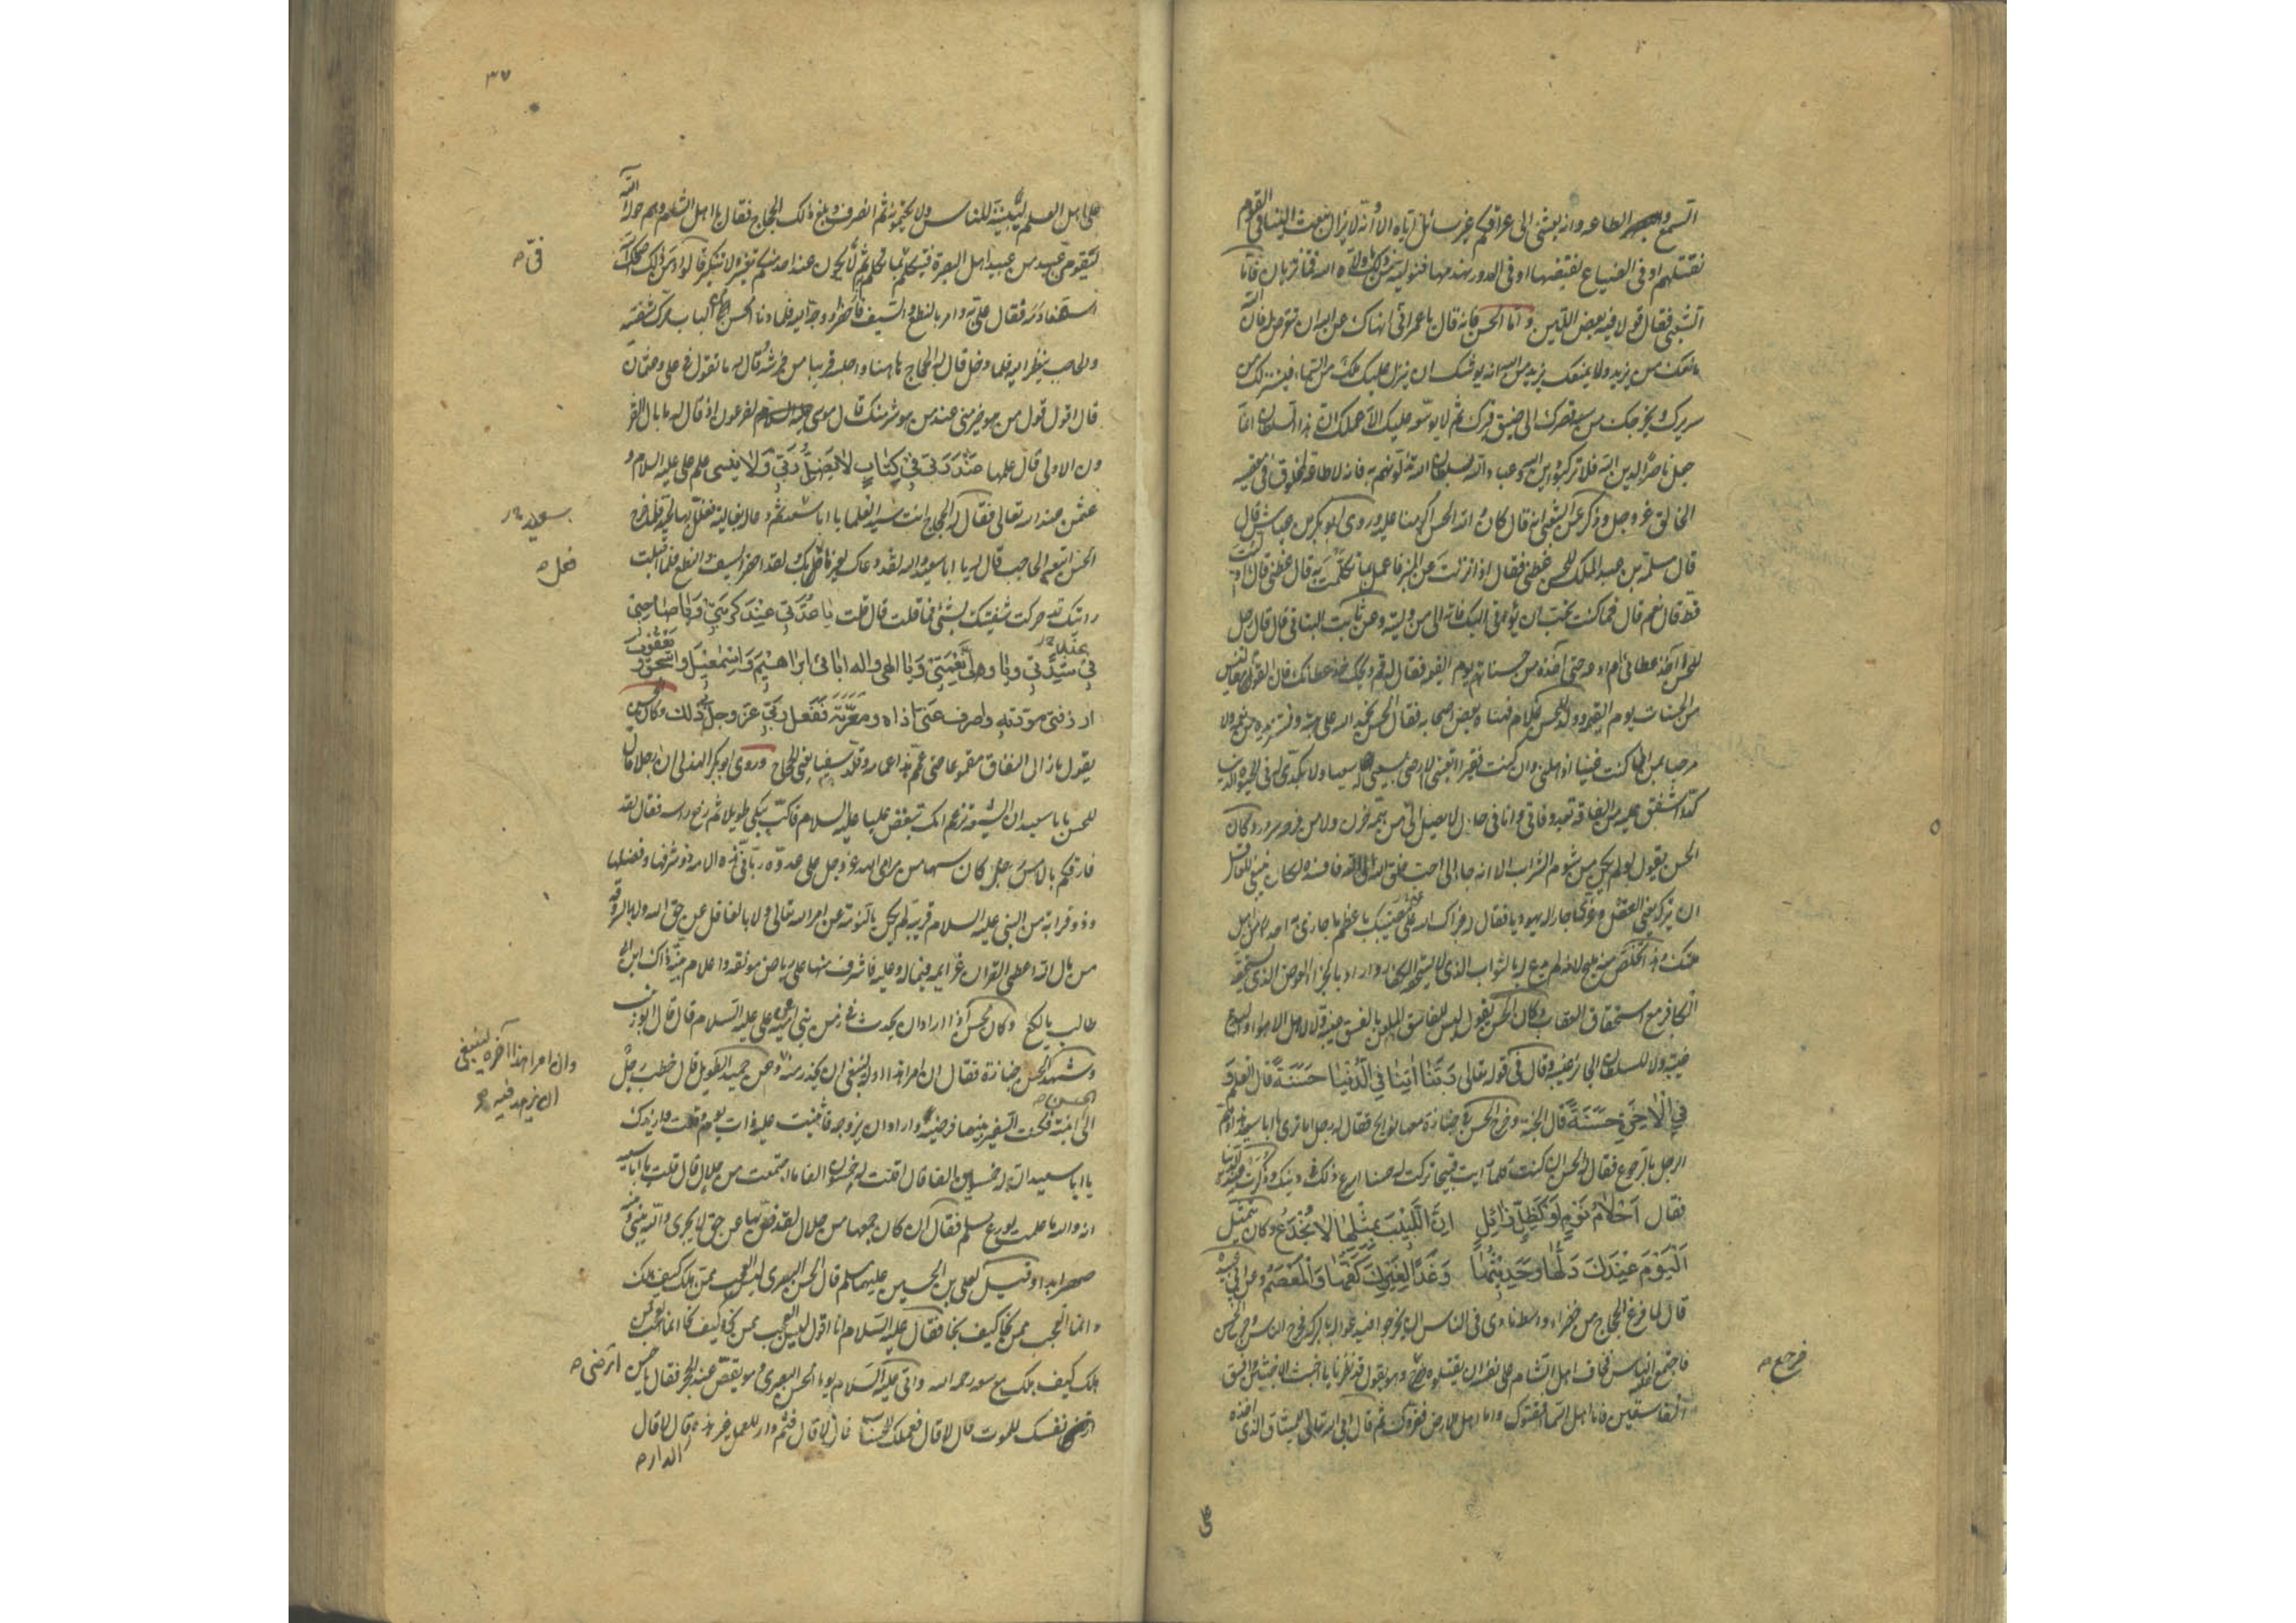 السمع والطاعه وانه بعثنى الى عراقكم عن غير سائل اياه الا انه لا يزال يبعث الينا فى القوم
نقتلهم او فى الضياع نقبضها او فى الدور نهدمها فنوليه من ذلك ما ولاه الله فما تريان فاما
الشعبى فقال قولا فيه بعض اللين واما الحسن فانه قال يا عمر انى انهاك عن الله ان تتعرض له فان الله
مانعك من يزيد ولا يمنعك يزيد من الله انه يوشك ان ينزل عليك ملك من السماء فيستنزلك من
سريرك ويخرجك من سعة قصرك الى ضيق قبرك ثم لا يوسعه عليك الا عملك ان هذا السلطان انما
جعل ناصرا لدين الله فلا تركبوا دين الله وعباد الله بسلطان الله تذلونهم به فانه لا طاعة لمخلوق فى معصية
الخالق عز وجل وذكر عن الشعبى انه قال كان والله الحسن اكرمنا عليه وروى ابو بكر بن عياش قال
قال مسلمة بن عبد الملك للحسن عظنى فقال اذا نزلت عن المنبر فاعمل بما تكلمت به قال عظنى قال اوليت
قط قال نعم قال فما كنت تحب ان يؤتى اليك فاته الى من وليته وعن ثابت البنانى قال قال رجل
للحسن آخذ عطائى ام ادعه حتى آخذه من حسناتهم يوم القيمة فقال له قم ويحك خذ عطاءك فان القوم مفاليس
من الحسنات يوم القيمة وولد للحسن غلام فهناه بعض اصحابه فقال الحسن نحمد الله على هبته ونستزيده من نعمه ولا
مرحبا بمن ان كنت غنيا اذهلنى وان كنت فقيرا اتعبنى لا ارضى بسعيى له سعيا ولا بكدى له فى الحيوة كدا
كدا اشفق عليه من الفاقة بعد وفاتى وانا فى حال لا يصل الى من همه حزن ولا من فرحه سرور وكان
الحسن يقول لو لم يكن من شوم الشراب الا انه جاء الى احب خلق الله الى الله فافسده لكان ينبغى للعاقل
ان يتركه يعنى العقل وعزى جارا له يهوديا فقال له جزاك الله على مصيبتك باعظم ما جازى به احدا من اهل
ملتك وهذا تخلص منه مليح لانه لم يدع له بالثواب الذى لا يستحقه الكفار واراد بالجزاء العوض الذى يستحقه
الكافر مع استحقاق العقاب وكان الحسن يقول ليس للفاسق المعلن بالفسق غيبة ولا لاهل الاهواء والبدع
غيبة ولا للسلطان الجائر غيبة وقال فى قوله تعالى ربنا اتنا فى الدنيا حسنة قال العلم و
فى الاخرة حسنة قال الجنة وخرج الحسن فى جنازة معها نوائح فقال له رجل اما ترى يا ابا سعيد هذا وهم
الرجل بالرجوع فقال له الحسن ان كنت كلما رايت قبيحا تركت له حسنا اسرع ذلك فى دينك وذكرت عنده الدنيا
فقال احلام نوم او كظل زائل ان اللبيب بمثلها لا يخدع وكان يتمثل
اليوم عندك دلها وحديثها وغدا لغيرك كفها والمعصم وعن ابى عبيدة
قال لما فرغ الحجاج من خضراء واسط نادى فى الناس ان يخرجوا فيدعوا له بالبركة فخرج الناس وخرج الحسن
فاجتمع عليه الناس فخاف اهل الشام على نفسه ان يقتلوه فرجع وهو يقول قد نظرنا يا اخبث الاخبثين وافسق
الفاسقين فاما اهل السماء فمقتوك واما اهل الارض فغروك ثم قال ابى الله تعالى للميثاق الذى اخذه
فرجع صح
على اهل العلم ليبيننه للناس ولا يكتمونه ثم انصرف وبلغ ذلك الحجاج فقال يا اهل الشام وهم حوله الله
ليقومن عبيد من عبيد اهل البصرة فيتكلم فى بما تكلم ثم لا يكون عند احد منكم تغيير ولا نكير قالوا ومن ذلك
فى صح
فقال على به وامر بالنطع والسيف فاحضر ووجه اليه فلما دنا الحسن من الباب حرك شفتيه
والحاجب ينظر اليه فلما دخل قال له الحجاج هاهنا واجلسه قريبا من فرشه وقال له ما تقول فى على وعثمان
قال اقول قول من هو خير منى عند من هو شر منك قال موسى عليه السلام لفرعون اذ قال له ما بال القر
ون الاولى قال علمها عند ربى فى كتاب لا يضل ربى ولا ينسى علم على عليه السلام و
عثمن عند الله تعالى فقال له الحجاج انت سيد العلماء يا ابا سعيد ثم دعا له بغالية فغلف بها لحيته فلما خرج
سعيد صح
الحسن اتبعه الحاجب فقال له يا ابا سعيد والله لقد دعاك لغير ما فعل بك ولقد احضر السيف والنطع فلما اقبلت
فعل صح
رايتك قد حركت شفتيك بشىء فما قلت قال قلت يا عدتى عند كربتى ويا صاحبى
عند شدتى ويا ولى نعمتى ويا الهى واله ابائى ابراهيم واسمعيل واسحق ويعقوب
ارزقنى مودته واصرف عنى اذاه ومعرته ففعل ربى عز وجل ذلك وكان الحسن
يقول ما زال النفاق مقموعا حتى عمم هذا عمامة وقلد سيفا يعنى الحجاج وروى ابو بكر الهذلى ان رجلا قال
للحسن يا ابا سعيد ان الشيعة تزعم انك تبغض عليا عليه السلام فاكب يبكى طويلا ثم رفع راسه فقال لقد
فارقكم بالامس رجل كان سهما من مرامى الله عز وجل على عدوه ربانى هذه الامة ذو شرفها وفضلها
وذو قرابة من النبى عليه السلام قريبة لم يكن بالنومة عن امر الله تعالى ولا بالغافل عن حق الله ولا بالسروقة
من مال الله اعطى القران عزائمه فيما له وعليه فاشرف منها على رياض مونقة واعلام بينة ذاك ابن ابى
طالب يا لكع وكان الحسن اذا اراد ان يحدث فى زمن بنى امية عن على عليه السلام قال قال ابو زينب
وشهد الحسن جنازة فقال ان امرا هذا اوله لينبغى ان يحذر منه وعن حميد الطويل قال خطب رجل
وان امرا هذا آخره لينبغى
ان يزهد فيه صح
الى الحسن ابنته فكنت السفير بينهما فرضيه واراد ان يزوجه فاثنيت عليه ذات يوم وقلت وازيدك
يا ابا سعيد ان له خمسين الفا قال اقلت له خمسون الفا ما اجتمعت من حلال قال قلت يا ابا سعيد
انه والله ما علمت لورع مسلم فقال ان كان جمعها من حلال لقد ضن بها عن حق لا يجرى والله بينى وبينه
صهر ابدا وقيل لعلى بن الحسين عليهما سلم قال الحسن البصرى ليس العجب ممن هلك كيف هلك
وانما العجب ممن نجا كيف نجا فقال عليه السلام انا اقول ليس العجب ممن نجا كيف نجا انما العجب ممن
هلك كيف هلك مع سعة رحمة الله واتى عليه السلام يوما الحسن البصرى وهو يقص عند الحجر فقال يا حسن اترضى صح
نفسك للموت قال لا قال فعملك للحساب قال لا قال فثم دار للعمل غير هذه الدار صح قال لا قال
٣٧